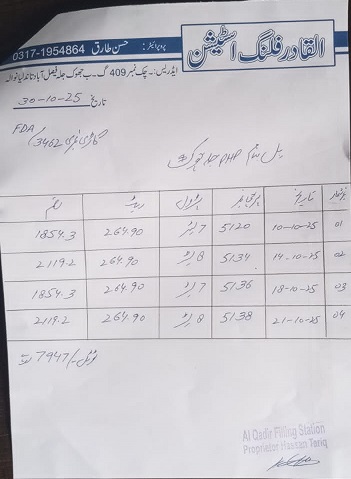 القادر فلنگ اسٹیشن
پروپرائیٹر: حسن طارق 0317-1954864
ایڈریس: چک نمبر 409 گ ب جھوک جلہ فیصل آباد تاندلیانوالہ
تاریخ 30-10-25
FDA/3462
بل بنام PHP
نمبر شمار تاریخ پرچی نمبر پٹرول ریٹ رقم
01 10-10-25 5120 7 لیٹر 264.90 1854.3
02 14-10-25 5134 8 لیٹر 264.90 2119.2
03 18-10-25 5136 7 لیٹر 264.90 1854.3
04 21-10-25 5138 8 لیٹر 264.90 2119.2
ٹوٹل 7947/-
Al Qadir Filling Station
Proprietor Hassan Tariq